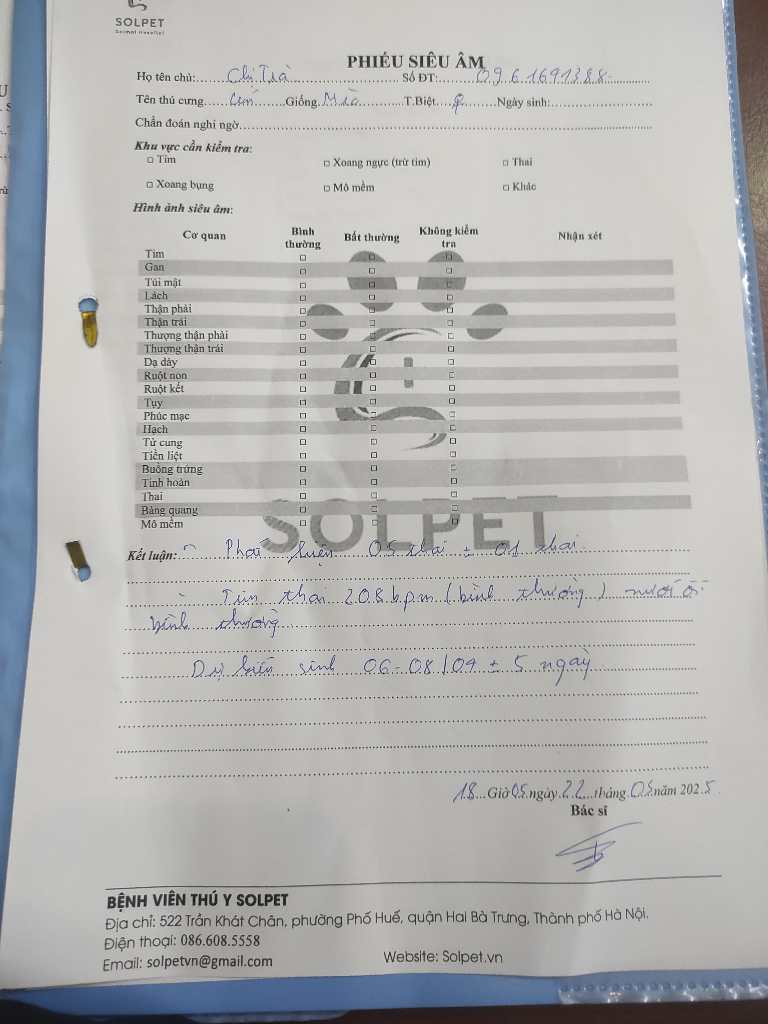 SOLPET
Animal Hospital
PHIẾU SIÊU ÂM
Họ tên chủ: Chị Trà Số ĐT: 0961691388
Tên thú cưng Cún Giống Mèo T.Biệt ♀ Ngày sinh:
Chẩn đoán nghi ngờ
Khu vực cần kiểm tra:
□ Tim □ Xoang ngực (trừ tim) □ Thai
□ Xoang bụng □ Mô mềm □ Khác
Hình ảnh siêu âm:
Cơ quan Bình thường Bất thường Không kiểm tra Nhận xét
Tim □ □ □
Gan □ □ □
Túi mật □ □ □
Lách □ □ □
Thận phải □ □ □
Thận trái □ □ □
Thượng thận phải □ □ □
Thượng thận trái □ □ □
Dạ dày □ □ □
Ruột non □ □ □
Ruột kết □ □ □
Tụy □ □ □
Phúc mạc □ □ □
Hạch □ □ □
Tử cung □ □ □
Tiền liệt □ □ □
Buồng trứng □ □ □
Tinh hoàn □ □ □
Thai □ □ □
Bàng quang □ □ □
Mô mềm □ □ □
SOLPET
Kết luận: - Phát hiện 05 thai ± 01 thai.
- Tim thai 208 bpm (bình thường) nước ối
bình thường
Dự kiến sinh 06-08/04 ± 5 ngày
18 Giờ 05 ngày 22 tháng 03 năm 2025
Bác sĩ
BỆNH VIỆN THÚ Y SOLPET
Địa chỉ: 522 Trần Khát Chân, phường Phố Huế, quận Hai Bà Trưng, Thành phố Hà Nội.
Điện thoại: 086.608.5558
Email: solpetvn@gmail.com Website: Solpet.vn